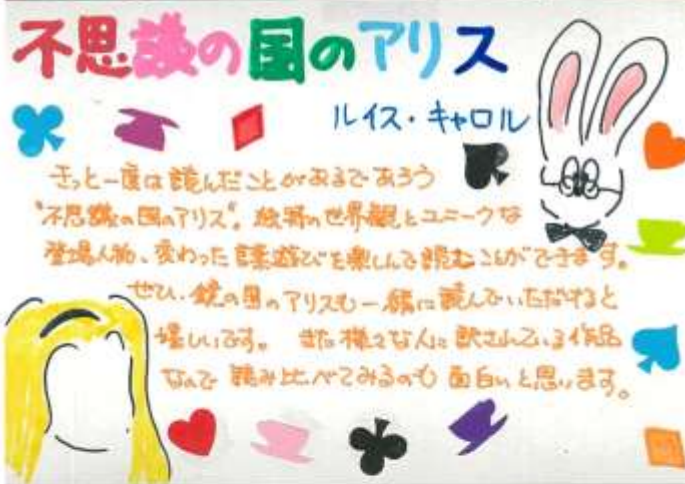 不思議の国のアリス
ルイス・キャロル
きっと一度は読んだことがあるであろう
"不思議の国のアリス"。独特の世界観とユニークな
登場人物、変わった言葉遊びを楽しんで読むことができます。
ぜひ、鏡の国のアリスも一緒に読んでいただけると
嬉しいです。また様々な人に訳されている作品
なので読み比べてみるのも面白いと思います。